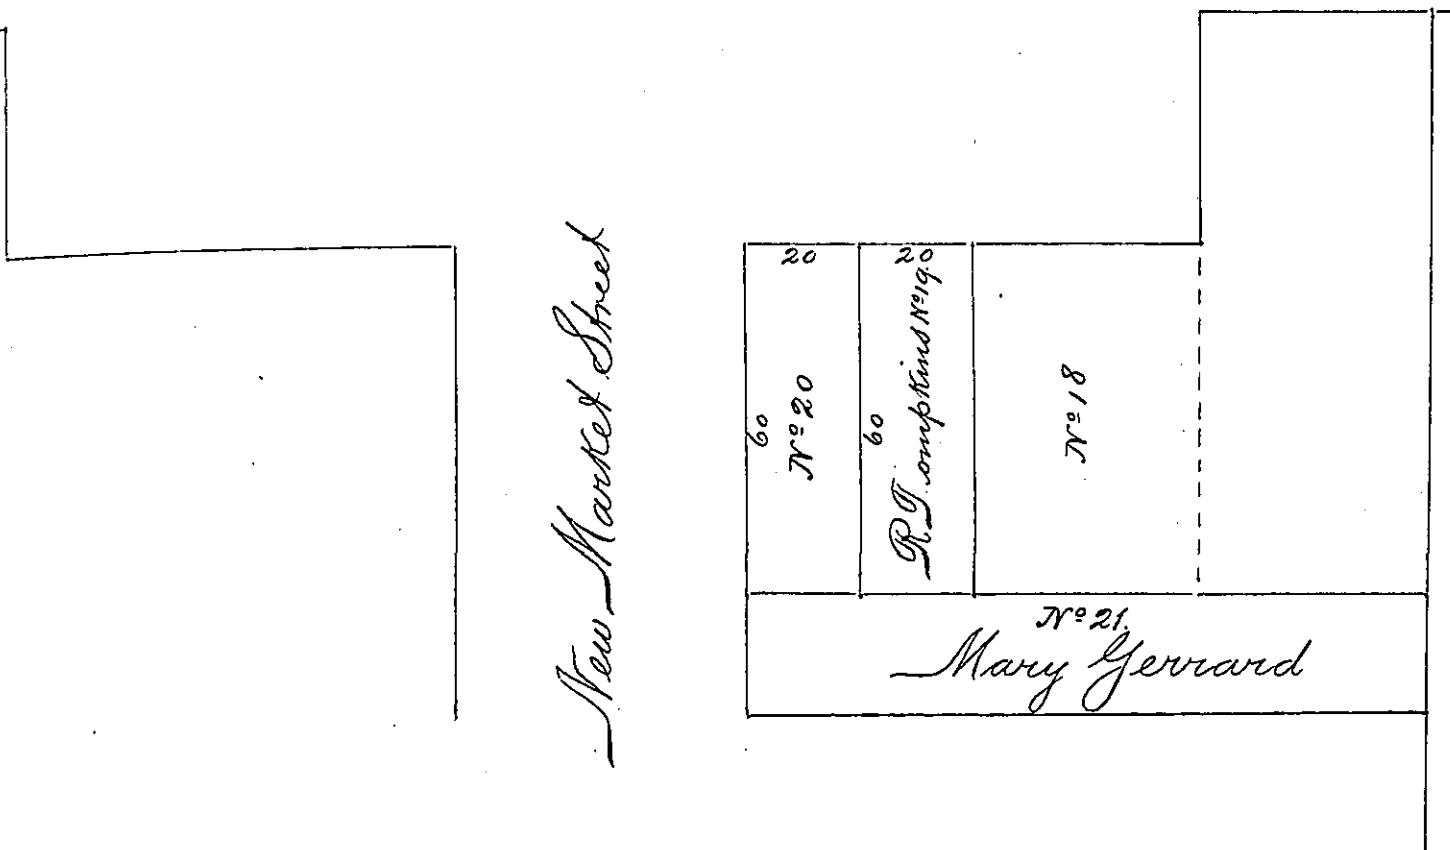 New Market Street
20
60
Nº 20
20
60
R Tompkins Nº 19
Nº 18
Nº 21.
Mary Gerrard